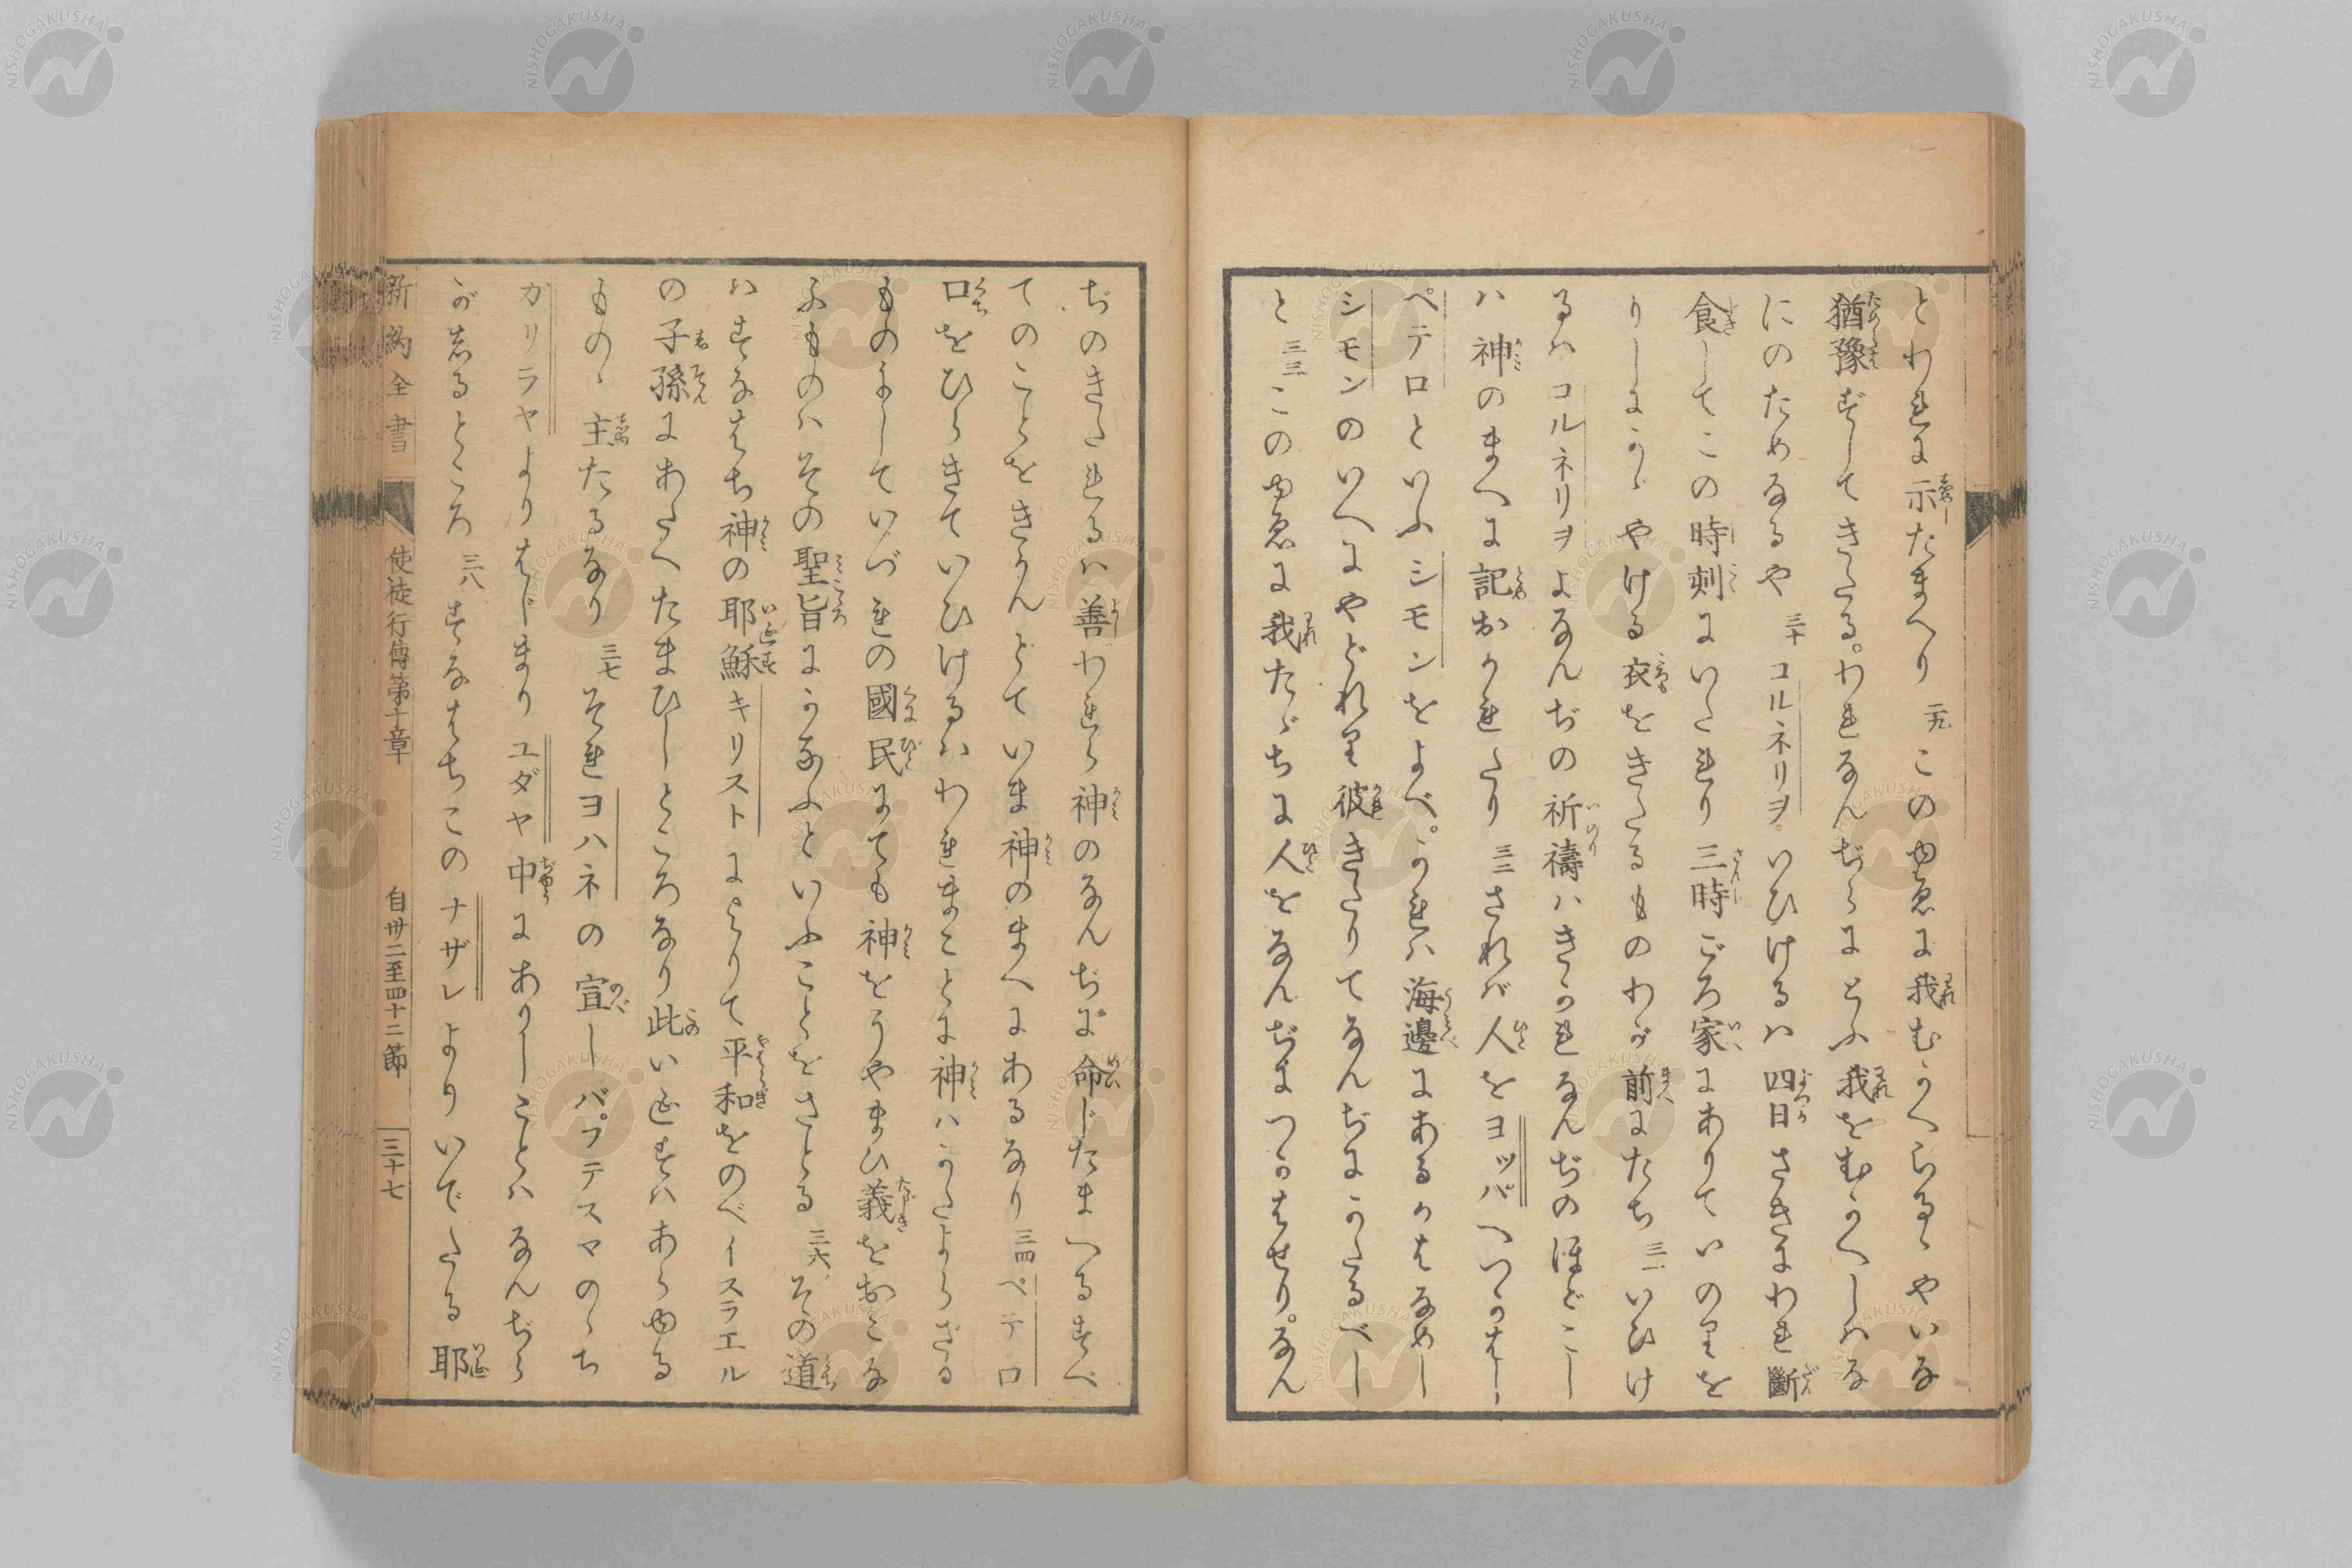 とわれに示たまへり 二九 このゆゑに我むかへらるゝやいな
猶豫ずしてきたる。われなんぢらにとふ我をむかへしハな
にのためなるや 三十 コルネリヲいひけるハ四日さきにわれ斷
食してこの時刻にいたれり三時ごろ家にありていのりを
りしにかゞやける衣をきたるものわが前にたち 三一 いひけ
るハコルネリヲよなんぢの祈禱ハきかれなんぢのほどこし
ハ神のまへに記おかれたり 三二 されバ人をヨッパへつかはし
ペテロといふシモンをよべ。かれハ海邊にあるかはなめし
シモンのいへにやどれり彼きたりてなんぢにかたるべし
と 三三 このゆゑに我たゞちに人をなんぢにつかはせり。なん
ぢのきたれるハ善われら神のなんぢに命じたまへるすべ
てのことをきかんとていま神のまへにあるなり 三四 ペテロ
口をひらきていひけるハわれまことに神ハかたよらざる
ものにしていづれの國民にても神をうやまひ義をおこな
ふものハその聖旨にかなふといふことをさとる 三六 その道
ハすなはち神の耶穌キリストによりて平和をのべイスラエル
の子孫にあたへたまひしところなり此いゑすハあらゆる
ものゝ主たるなり 三七 それヨハネの宣しバプテスマのゝち
ガリラヤよりはじまりユダヤ中にありしことハなんぢら
が志るところ 三八 すなはちこのナザレよりいでたる耶
新約全書 使徒行傳第十章 自卅二至四十二節 三十七
NISHOGAKUSHA